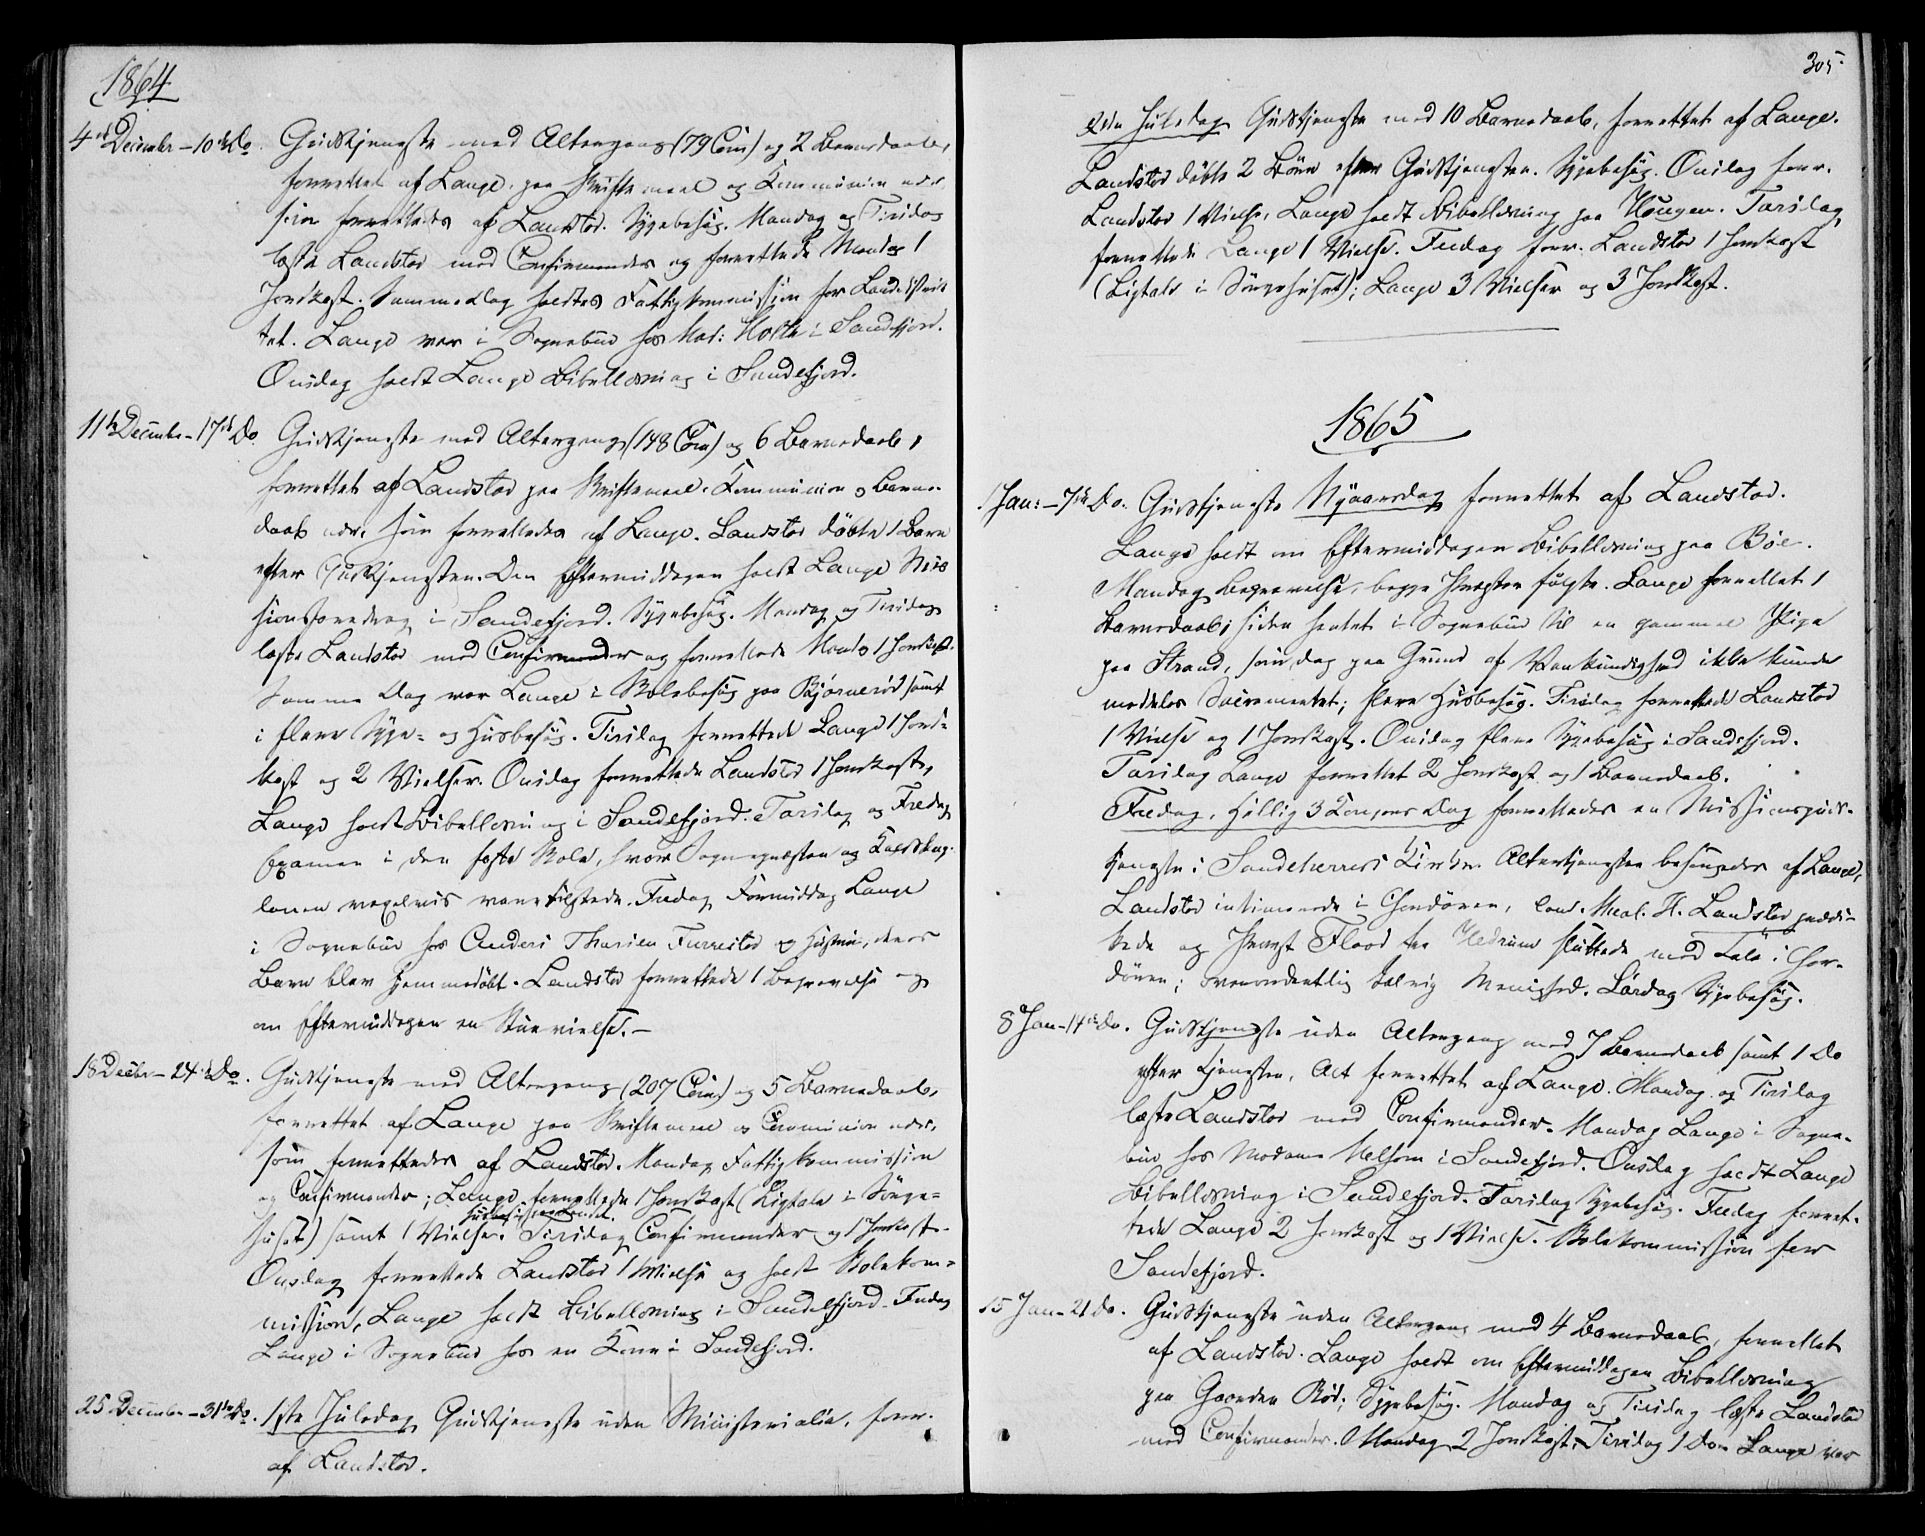 1864
4de December – 10de Do. Gudstjeneste med Altergang (79 Com) og 2 Barnedaab,
forrettet af Lange paa Skriftemaal og Kommunion nær,
som forrettedes af Landstad. Sygebesøg. Mandag og Tirsdag
læste Landstad med Confirmander og forrettede Mandag 1
Jordkast. Samme Dag holdtes Fattigkommission for Landdistrik
tet. Lange var i Sognebud hos Mad: Holth i Sandefjord.
Onsdag holdt Lange Bibellæsning i Sandefjord.
11te December – 17de Do. Gudstjeneste med Altergang (148 Com) og 6 Barnedaab,
forrettet af Landstad paa Skriftemaal, Kommunion og Barne-
daab nær, som forrettedes af Lange. Landstad døbte 1 Barn
efter Gudstjenesten. Om Eftermiddagen holdt Lange Mis
sionsforedrag i Sandefjord. Sygebesøg. Mandag og Tirsdag
læste Landstad med Confirmander og forrettede Mandag 1 Jordkast.
Samme Dag var Lange i Skolebesøg paa Bjørnerød samt
i flere Syge- og Husbesøg. Tirsdag forrettede Lange 1 Jord-
kast og 2 Vielser. Onsdag forrettede Landstad 1 Jordkast,
Lange holdt Bibellæsning i Sandefjord. Torsdag og Fredag
Examen i den faste Skole, hvor Sognepræsten og Kaldskap-
lanen vexelvis vare tilstede. Fredag Formiddag Lange
i Sognebud hos Anders Thorsen Furustad og Hustru, deres
Barn blev hjemmedøbt. Landstad forrettede 1 Begravelse og
om Eftermiddagen en Stuevielse. –
18 Decbr – 24de Do. Gudstjeneste med Altergang (207 Com) og 5 Barnedaab,
forrettet af Lange paa Skriftemaal og Communion nær,
som forrettedes af Landstad. Mandag Fattigkommission
og Confirmander; Lange forrettede 1 Jordkast (Ligtale i Sørge-
huset) samt 1 Vielse. Tirsdag Confirmander og 1 Jordkast.
Onsdag forrettede Landstad 1 Vielse og holdt Skolekom-
mission, Lange holdt Bibellæsning i Sandefjord. Fredag
Lange i Sognebud hos en Kone i Sandefjord.
25 December – 31te Do. 1ste Juledag Gudstjeneste uden Ministerialia, forr.
af Landstad.
305
2den Juledag Gudstjeneste med 10 Barnedaab, forrettet af Lange.
Landstad døbte 2 Børn efter Gudstjenesten. Sygebesøg. Onsdag forr.
Landstad 1 Vielse, Lange holdt Bibellæsning paa Haugen. Torsdag
forrettede Lange 1 Vielse. Fredag forr. Landstad 1 Jordkast
(Ligtale i Sørgehuset); Lange 3 Vielser og 3 Jordkast.
1865
1 Jan: – 7de Do. Gudstjeneste Nyaarsdag forrettet af Landstad.
Lange holdt om Eftermiddagen Bibellæsning paa Bøe.
Mandag Begravelse, begge Præster fulgte. Lange forrettet 1
Barnedaab; siden hentet i Sognebud til en gammel Pige
paa Strand, som dog paa Grund af Vankundighed ikke kunde
meddeles Sacramentet; flere Husbesøg. Tirsdag forrettede Landstad
1 Vielse og 1 Jordkast. Onsdag flere Sygebesøg i Sandefjord.
Torsdag Lange forrettet 2 Jordkast og 1 Barnedaab.
Fredag, Hellig 3 Kongers Dag forrettedes en Missionsguds-
tjeneste i Sandeherreds Kirke. Altertjenesten besørgedes af Lange,
Landstad intimerede i Chordøren, Cand. Theol. H. Landstad prædi-
kede og Provst Flood fra Hedrum sluttede med Tale i Chor-
døren; overordentlig talrig Menighed. Lørdag Sygebesøg.
8 Jan – 14de Do. Gudstjeneste uden Altergang med 7 Barnedaab samt 1 Do
efter Tjenesten, Alt forrettet af Lange. Mandag og Tirsdag
læste Landstad med Confirmander. Mandag Lange i Sogne-
bud hos Madame Melsom i Sandefjord. Onsdag holdt Lange
Bibellæsning i Sandefjord. Torsdag Sygebesøg. Fredag forret-
tede Lange 2 Jordkast og 1 Vielse. Skolekommission for
Sandefjord.
15 Jan – 21 Do. Gudstjeneste uden Altergang med 4 Barnedaab, forrettet
af Landstad. Lange holdt om Eftermiddagen Bibellæsning
paa Gaarden Rød; Sygebesøg. Mandag og Tirsdag læste Landstad
med Confirmander. Mandag 2 Jordkast, Tirsdag 1 Do. Lange var